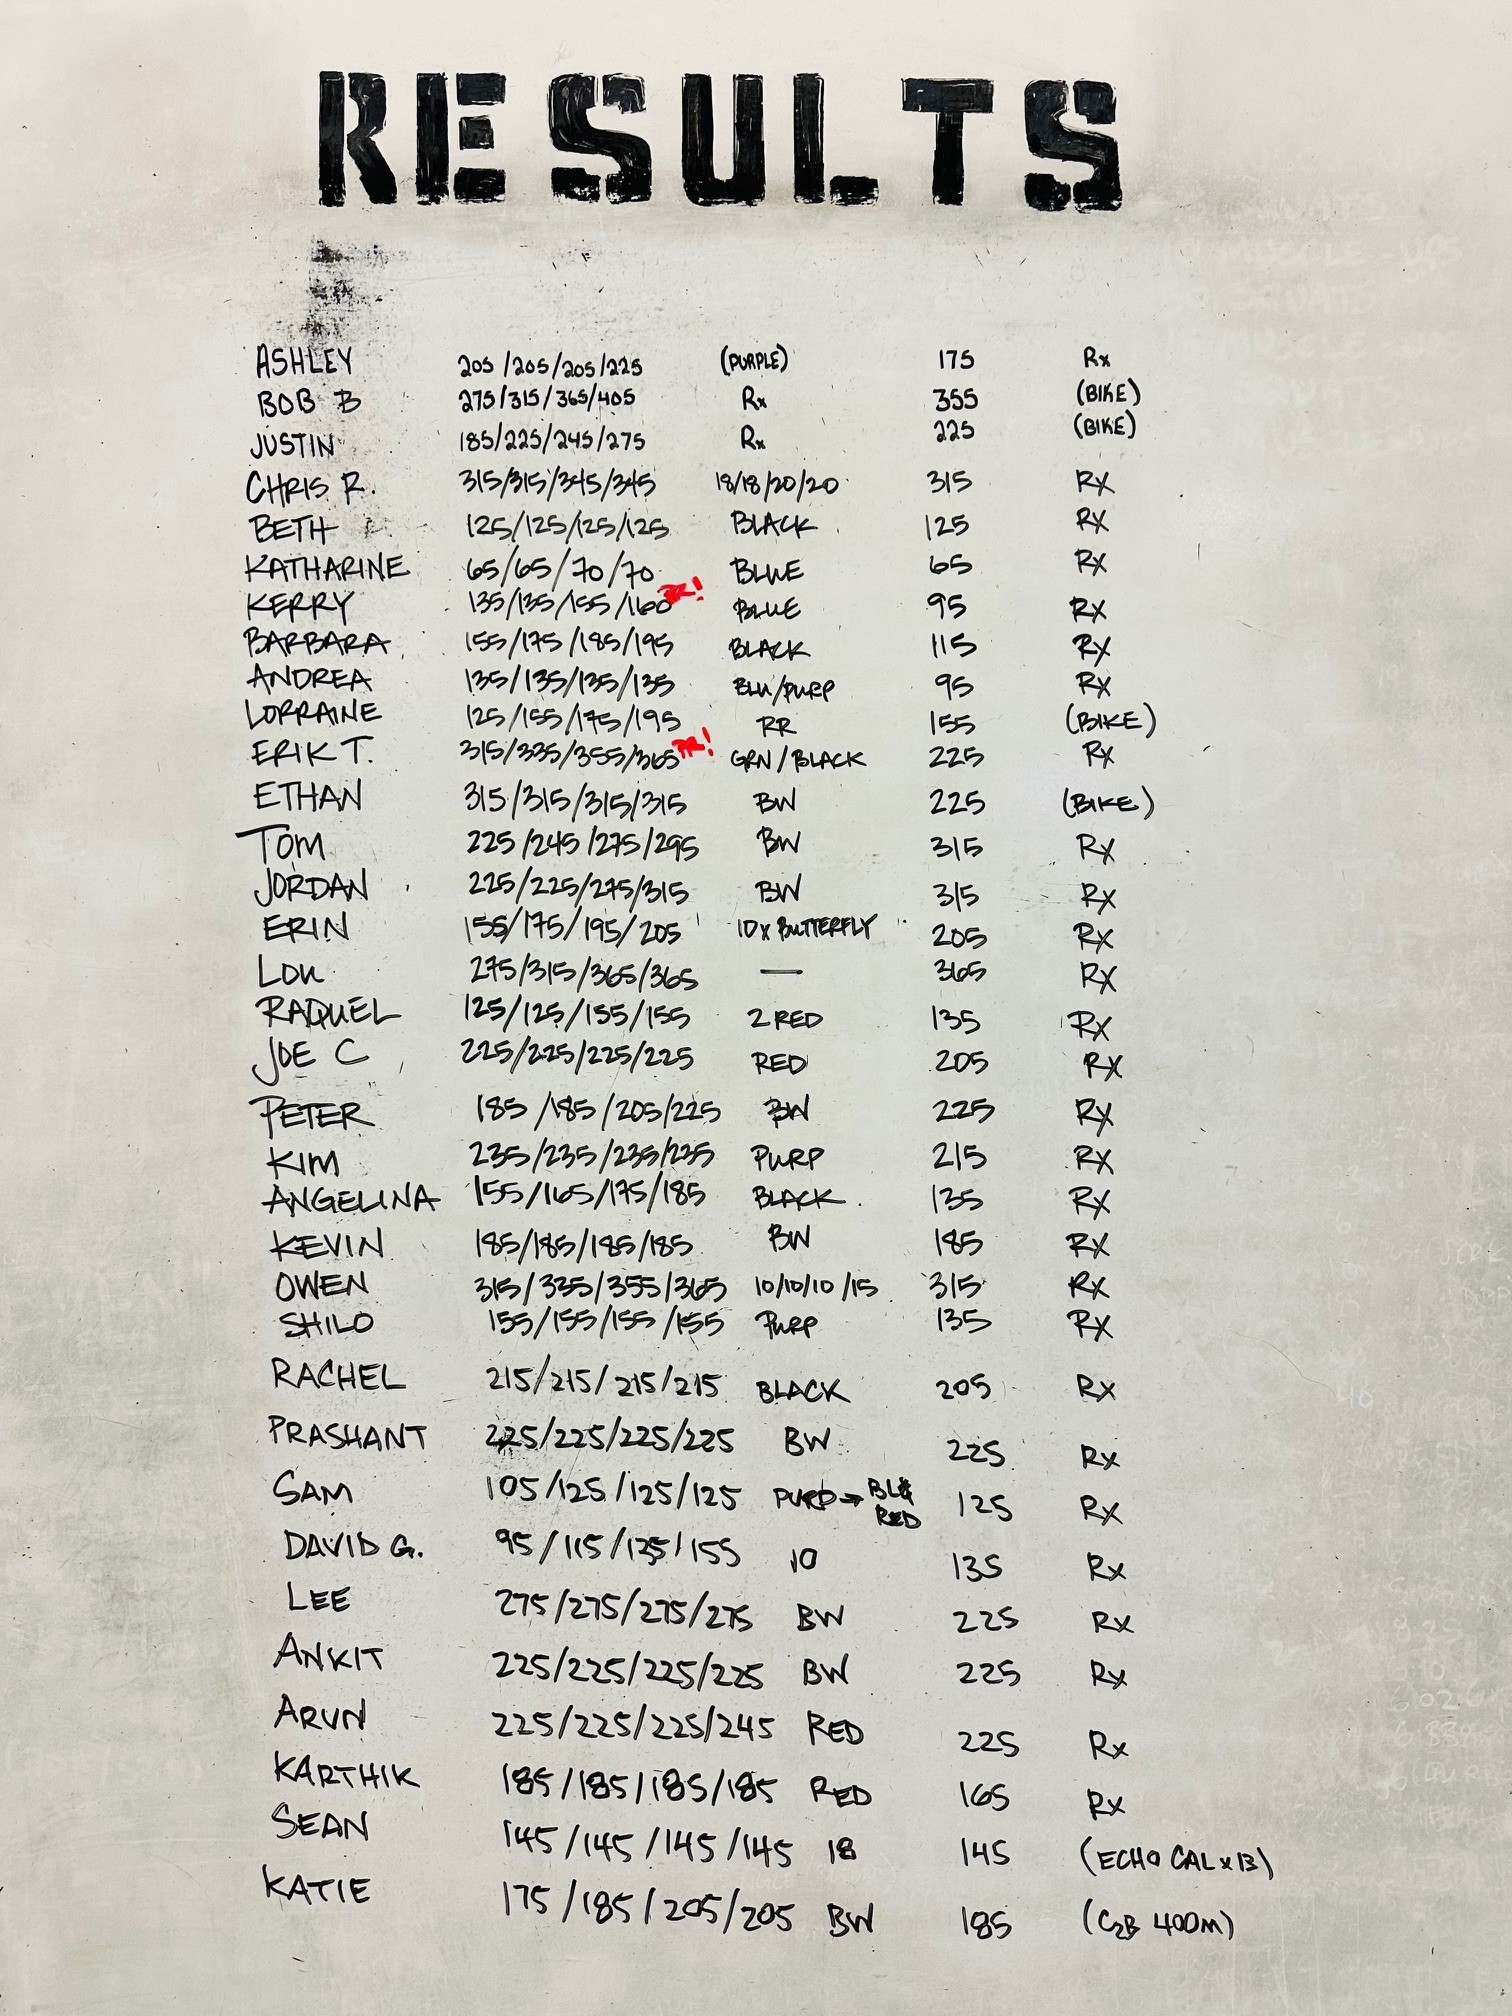 RESULTS
ASHLEY 205/205/205/225 (PURPLE) 175 Rx
BOB B 275/315/365/405 Rx 355 (BIKE)
JUSTIN 185/225/245/275 Rx 225 (BIKE)
CHRIS R. 315/315/345/345 18/18/20/20 315 RX
BETH 125/125/125/125 BLACK 125 RX
KATHARINE 65/65/70/70 BLUE 65 RX
KERRY 135/135/155/160 PR! BLUE 95 RX
BARBARA 155/175/185/195 BLACK 115 RX
ANDREA 135/135/135/135 BLU/PURP 95 RX
LORRAINE 125/155/175/195 RR 155 (BIKE)
ERIK T. 315/335/355/365 PR! GRN/BLACK 225 RX
ETHAN 315/315/315/315 BW 225 (BIKE)
TOM 225/245/275/295 BW 315 RX
JORDAN 225/225/275/315 BW 315 RX
ERIN 155/175/195/205 10x BUTTERFLY 205 RX
LOU 275/315/365/365 — 365 RX
RAQUEL 125/125/155/155 2 RED 135 RX
JOE C 225/225/225/225 RED 205 RX
PETER 185/185/205/225 BW 225 RX
KIM 235/235/235/235 PURP 215 RX
ANGELINA 155/165/175/185 BLACK 135 RX
KEVIN 185/185/185/185 BW 185 RX
OWEN 315/335/355/365 10/10/10/15 315 RX
SHILO 155/155/155/155 PURP 135 RX
RACHEL 215/215/215/215 BLACK 205 Rx
PRASHANT 225/225/225/225 BW 225 Rx
SAM 105/125/125/125 PURP→ RED 125 Rx
DAVID G. 95/115/135/155 10 135 Rx
LEE 275/275/275/275 BW 225 Rx
ANKIT 225/225/225/225 BW 225 Rx
ARUN 225/225/225/245 RED 225 Rx
KARTHIK 185/185/185/185 RED 165 Rx
SEAN 145/145/145/145 18 145 (ECHO CAL x 13)
KATIE 175/185/205/205 BW 185 (C2B 400M)